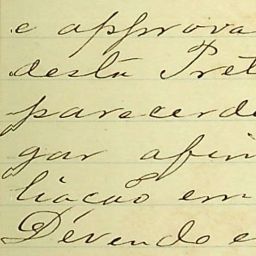 e approva
desta Pret
parecer d
gar afin
liação em
Devendo e